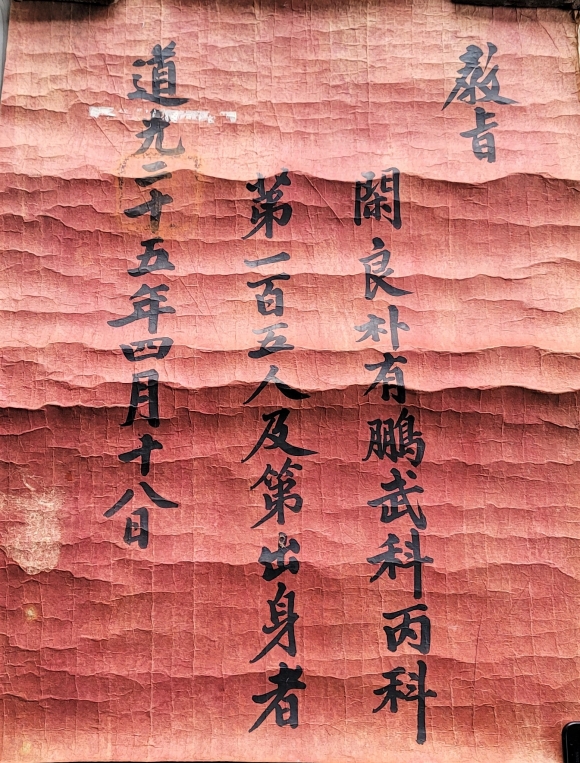 教旨
閑良朴有鵬武科丙科
苐一百五人及第出身者
道光二十五年四月十八日